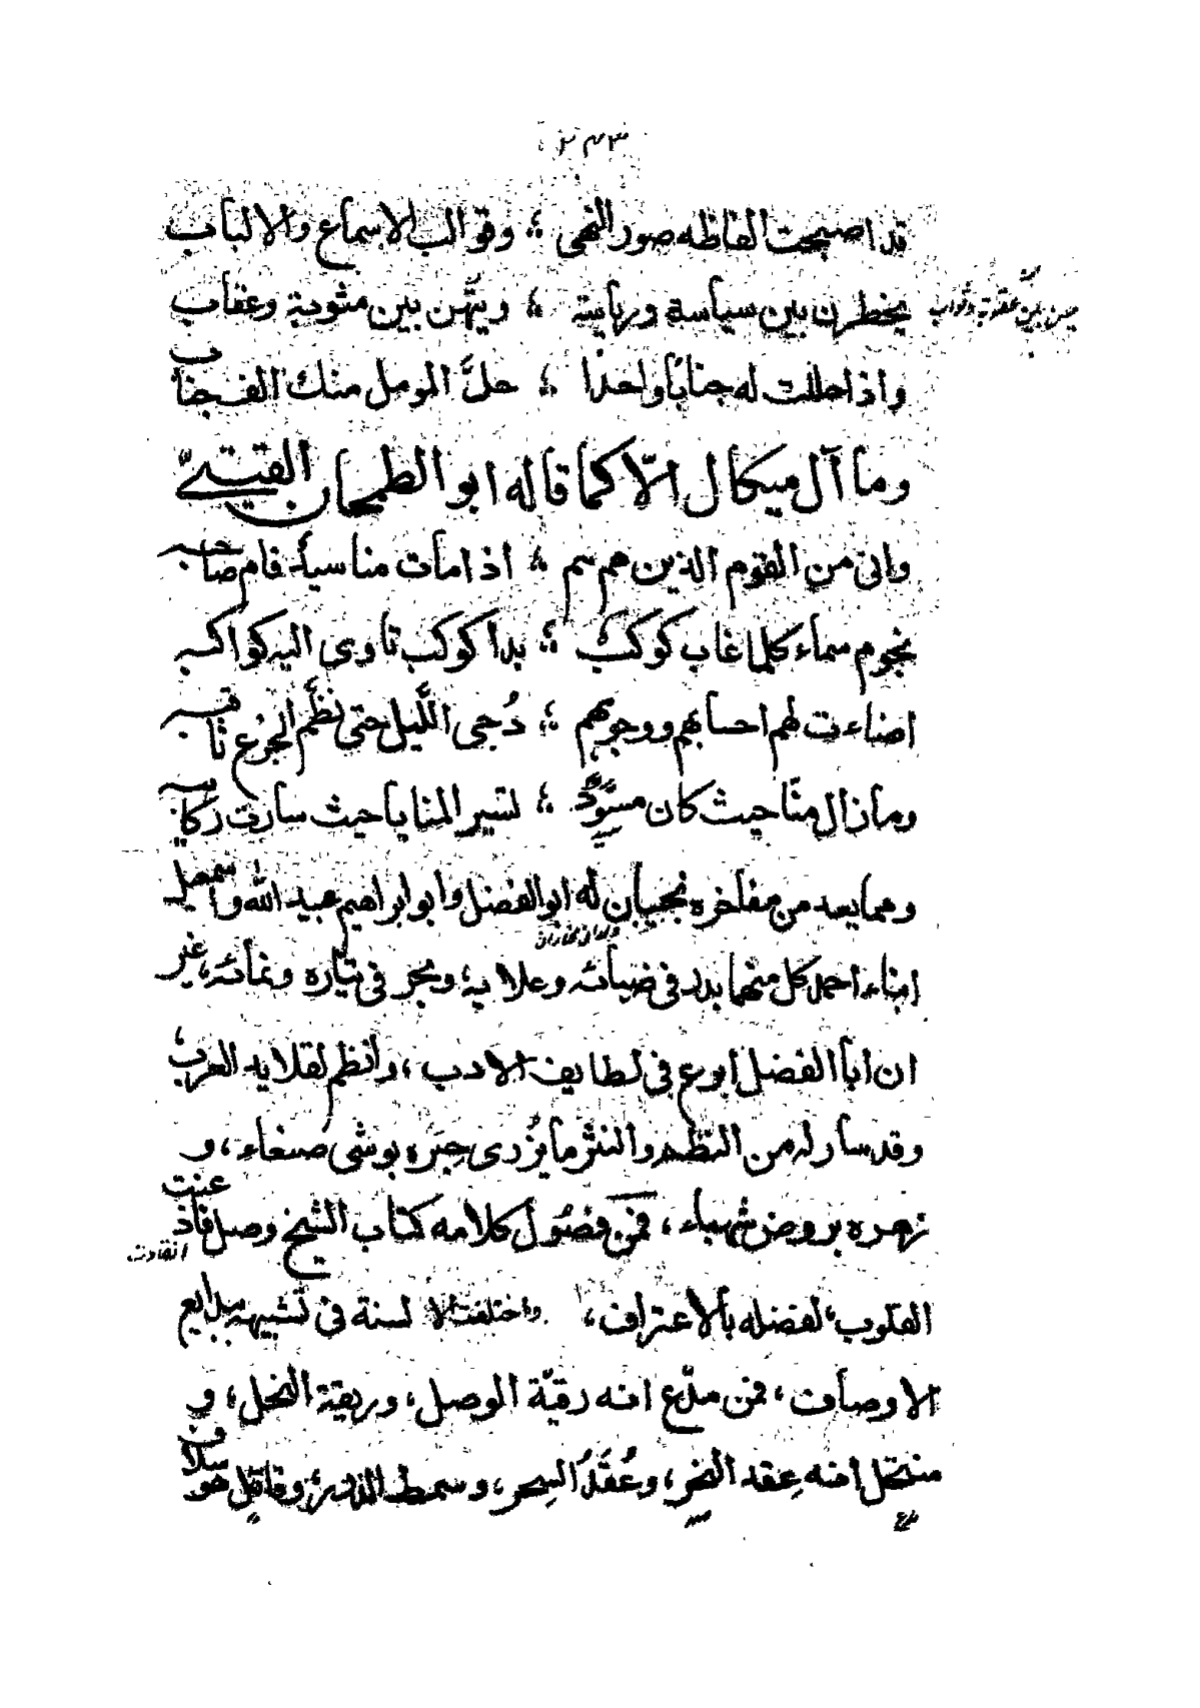 ٢٤٣
قد اصبحت الفاظه صور النهى ؛ وقوالب الاسماع والالباب
يخطرن بين سياسة ورياسة ؛ ويهن بين مثوبة وعقاب
بين عقوبة وثواب
واذا حللت له جنابا واحدا ؛ حلَّ المومل منك الف جناب
وما آل ميكال الّا كما قاله ابو الطمحان القينيّ
وانى من القوم الذين هم هم ؛ اذا مات منا سيد قام صاحبه
نجوم سماء كلما غاب كوكب ؛ بدا كوكب تاوى اليه كواكبه
اضاءت لهم احسابهم ووجوههم ؛ دُجى اللَّيل حتى نظَّم الجزع ثاقبه
وما زال منّا حيث كان مسوّد ؛ تسير المنايا حيث سارت ركايبه
ومما يعد من مفاخره نجيبان له ابو الفضل وابو ابراهيم عبيد الله واسمعيل
ولدان
ابناء احمد كل منهما بدر فى ضيائه وعلايه، وبحر فى تياره ونمائه، غير
ان ابا الفضل ابرع فى لطايف الادب، وانظم لقلايد العرب،
وقد سار له من النظم والنثر ما يُزرى حِبَره بوشى صنعاء، و
زهره بروض شهباء، فمن فصول كلامه كتاب الشيخ وصل فاذعنت
انقادت
القلوب، لفضله بالاعتراف، واختلفت الالسنة فى تشبيهه ببدايع
الاوصاف، فمن مدّع انه رقية الوصل، وريقة النحل، و
منتحل انه عِقد النحر، وعُقَدُ السِحر، وسمط الدرر، وقائل هو سلاف